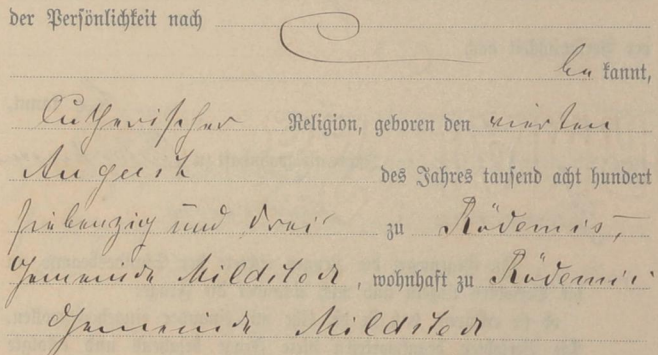 der Persönlichkeit nach
be kannt,
lutherischer Religion, geboren den vierten
August des Jahres tausend acht hundert
siebenzig und drei zu Rödemis,
Gemeinde Mildstedt, wohnhaft zu Rödemis
Gemeinde Mildstedt